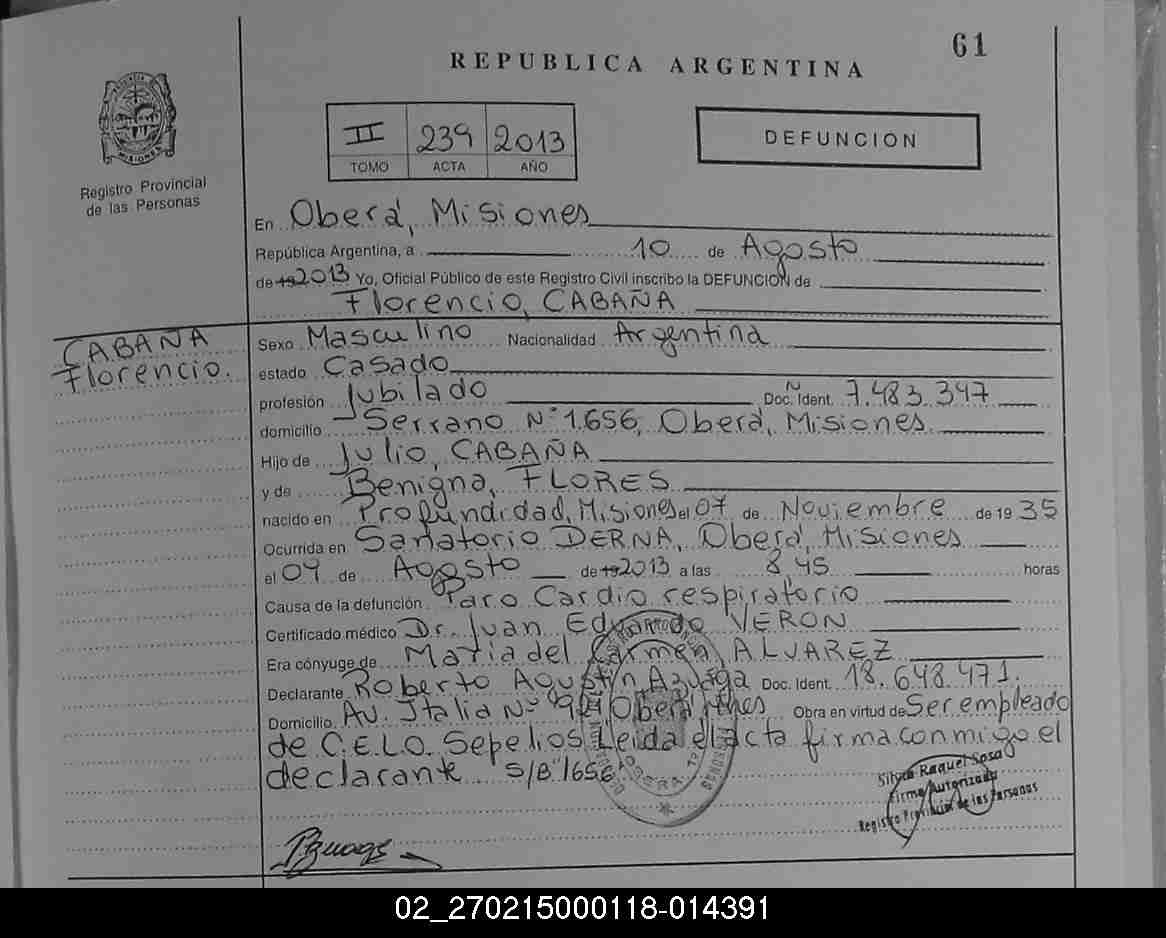 61
REPUBLICA ARGENTINA
II 239 2013
TOMO ACTA AÑO
DEFUNCION
Registro Provincial
de las Personas
En Oberá, Misiones
República Argentina, a 10 de Agosto
de 19 2013 Yo, Oficial Público de este Registro Civil inscribo la DEFUNCION de
Florencio, CABAÑA
CABAÑA
Florencio.
Sexo Masculino Nacionalidad Argentina
estado Casado
profesión Jubilado Doc. Ident. 7.483.347
domicilio Serrano N° 1.656, Oberá, Misiones
Hijo de Julio, CABAÑA
y de Benigna, FLORES
nacido en Profundidad, Misiones el 07 de Noviembre de 19 35
Ocurrida en Sanatorio DERNA, Oberá, Misiones
el 09 de Agosto de 19 2013 a las 8 45 horas
Causa de la defunción Paro Cardio respiratorio
Certificado médico Dr. Juan Eduardo VERON
Era cónyuge de Maria del Carmen, ALVAREZ
Declarante Roberto Agustín Doc. Ident. 18.648.471.
Domicilio Av. Italia N° Oberá Obra en virtud de Ser empleado
de C.E.L.O. Sepelios Leida el acta firma conmigo el
declarante S/B "1656.
Silvia Raquel Sosa
Firma Autorizada
Registro Provincial de las Personas
02_270215000118-014391